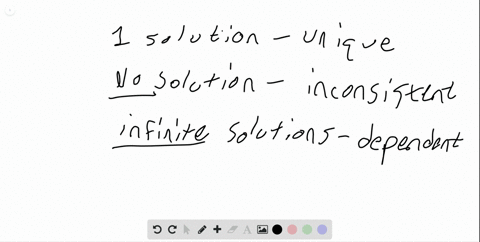 1 solution - unique
No solution - inconsistent
infinite solutions - dependent